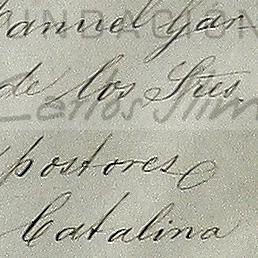 anuel Gar
de los Sres.
postores
Catalina